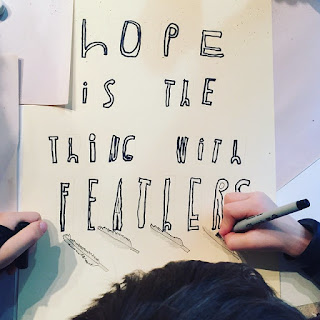 hOPE
iS ThE
ThiNG WiTh
FEAThERS